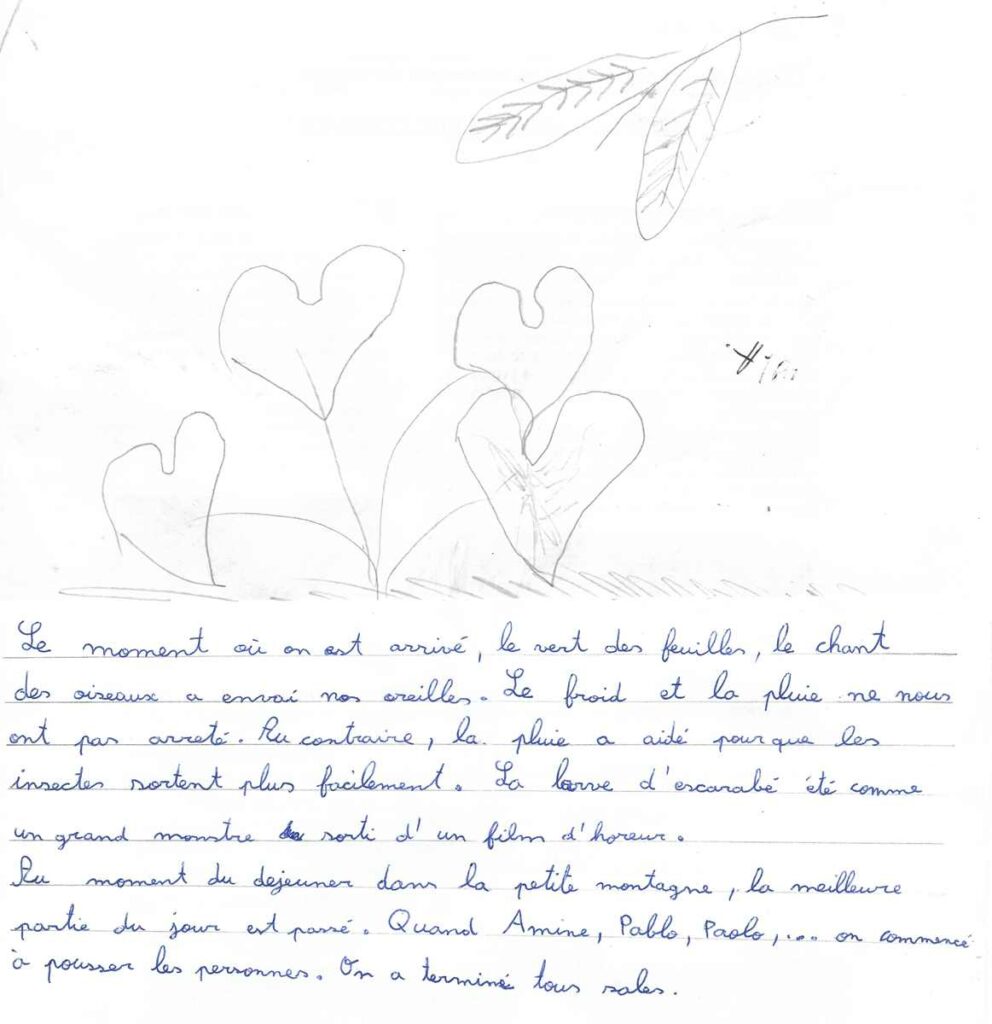 Le moment où on est arrivé, le vert des feuilles, le chant
des oiseaux a envai nos oreilles. Le froid et la pluie ne nous
ont pas arreté. Au contraire, la pluie a aidé pour que les
insectes sortent plus facilement. La larve d'escarabé été comme
un grand monstre sorti d'un film d'horeur.
Au moment du dejeuner dans la petite montagne, la meilleure
partie du jour est passé. Quand Amine, Pablo, Paolo,... on commencé
à pousser les personnes. On a terminé tous sales.